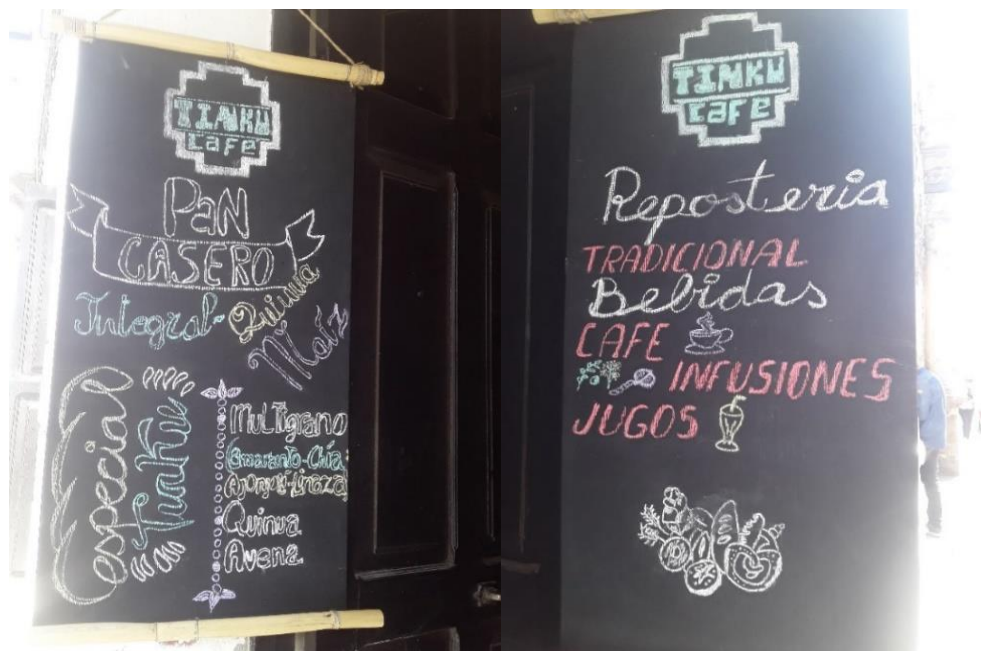 TINKU
CaFe
PaN
CASERO
Integral-Quinua
Maíz
especial
Tinku
MulTigrano
Amaranto-Chía
Ajonjolí-Linaza
Quinua
Avena
TINKU
CaFe
Reposteria
TRADICIONAL
Bebidas
CAFE
INFUSIONES
JUGOS